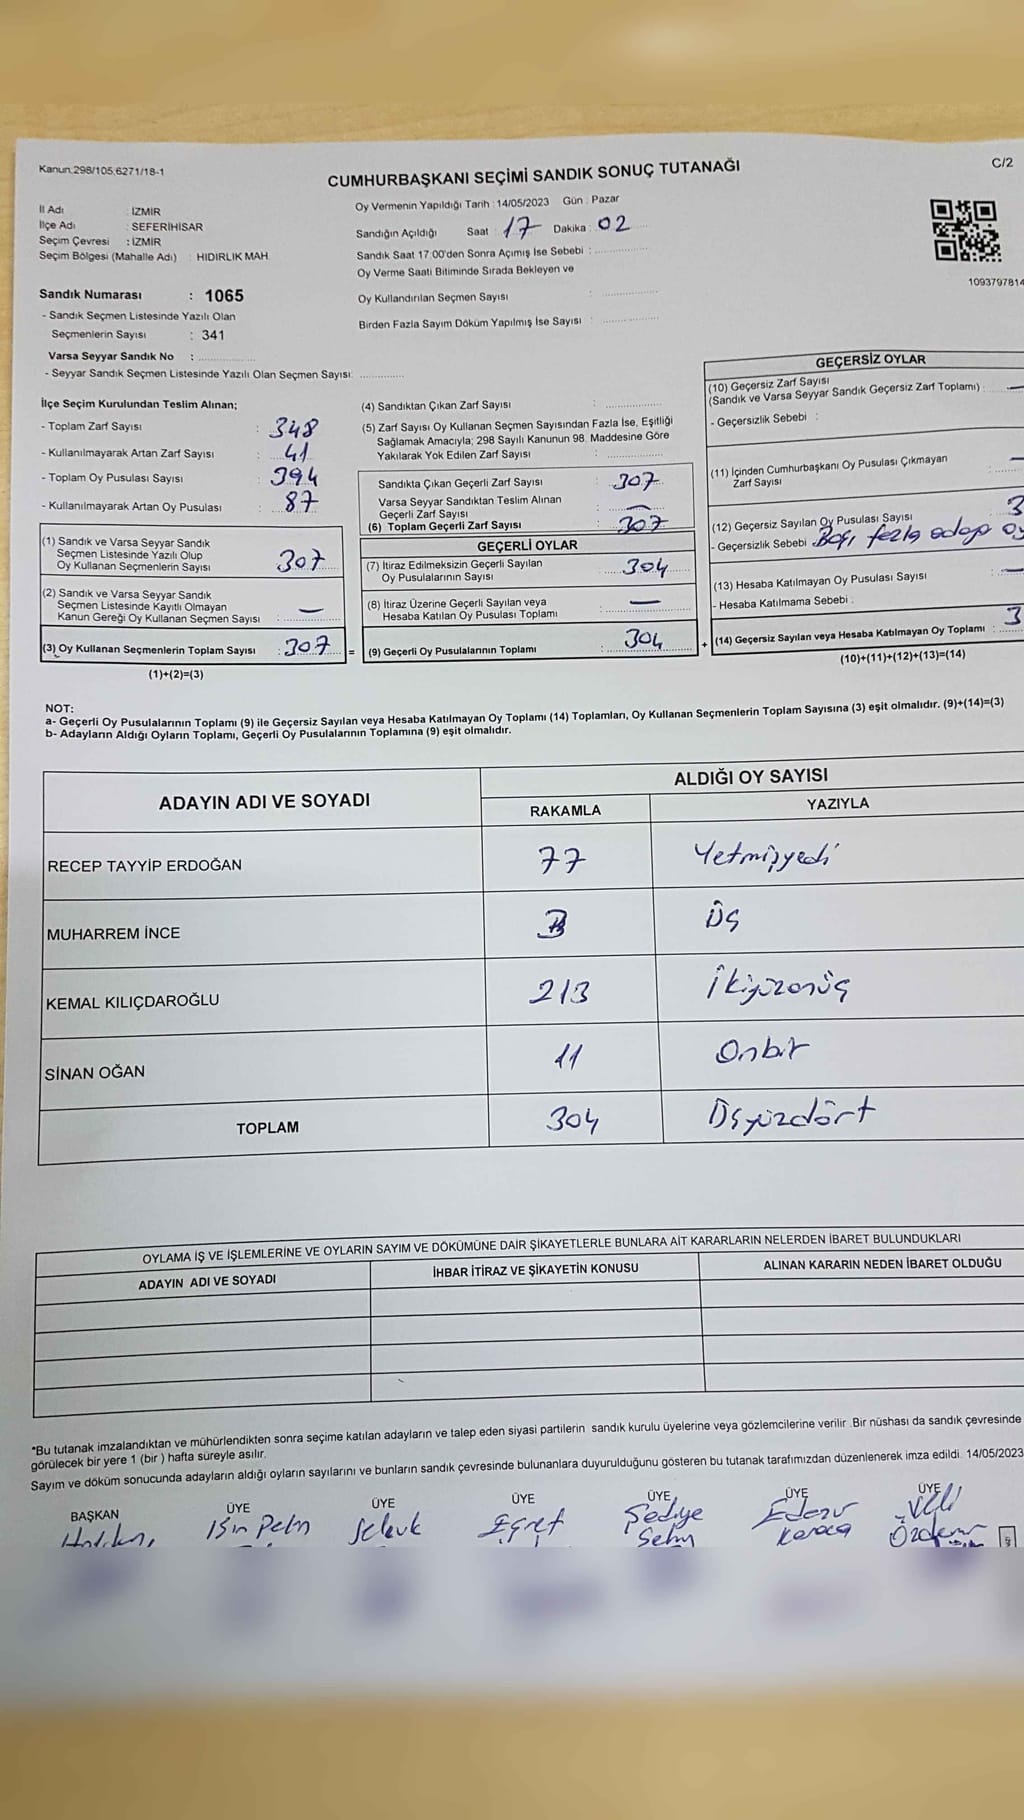 Kanun:298/105,6271/18-1
C/2
CUMHURBAŞKANI SEÇİMİ SANDIK SONUÇ TUTANAĞI
İl Adı : İZMİR
İlçe Adı : SEFERİHİSAR
Seçim Çevresi : İZMİR
Seçim Bölgesi (Mahalle Adı) : HIDIRLIK MAH.
Sandık Numarası : 1065
- Sandık Seçmen Listesinde Yazılı Olan
Seçmenlerin Sayısı : 341
Varsa Seyyar Sandık No :
- Seyyar Sandık Seçmen Listesinde Yazılı Olan Seçmen Sayısı:
Oy Vermenin Yapıldığı Tarih : 14/05/2023 Gün : Pazar
Sandığın Açıldığı Saat : 17 Dakika : 02
Sandık Saat 17:00'den Sonra Açımış İse Sebebi :
Oy Verme Saati Bitiminde Sırada Bekleyen ve
Oy Kullandırılan Seçmen Sayısı :
Birden Fazla Sayım Döküm Yapılmış İse Sayısı :
1093797814
İlçe Seçim Kurulundan Teslim Alınan;
- Toplam Zarf Sayısı : 348
- Kullanılmayarak Artan Zarf Sayısı : 41
- Toplam Oy Pusulası Sayısı : 394
- Kullanılmayarak Artan Oy Pusulası : 87
(1) Sandık ve Varsa Seyyar Sandık
Seçmen Listesinde Yazılı Olup
Oy Kullanan Seçmenlerin Sayısı : 307
(2) Sandık ve Varsa Seyyar Sandık
Seçmen Listesinde Kayıtlı Olmayan
Kanun Gereği Oy Kullanan Seçmen Sayısı : —
(3) Oy Kullanan Seçmenlerin Toplam Sayısı : 307 =
(1)+(2)=(3)
(4) Sandıktan Çıkan Zarf Sayısı :
(5) Zarf Sayısı Oy Kullanan Seçmen Sayısından Fazla İse, Eşitliği
Sağlamak Amacıyla; 298 Sayılı Kanunun 98. Maddesine Göre
Yakılarak Yok Edilen Zarf Sayısı :
Sandıkta Çıkan Geçerli Zarf Sayısı : 307
Varsa Seyyar Sandıktan Teslim Alınan
Geçerli Zarf Sayısı : —
(6) Toplam Geçerli Zarf Sayısı : 307
GEÇERLİ OYLAR
(7) İtiraz Edilmeksizin Geçerli Sayılan
Oy Pusulalarının Sayısı : 304
(8) İtiraz Üzerine Geçerli Sayılan veya
Hesaba Katılan Oy Pusulası Toplamı : —
(9) Geçerli Oy Pusulalarının Toplamı : 304 +
GEÇERSİZ OYLAR
(10) Geçersiz Zarf Sayısı
(Sandık ve Varsa Seyyar Sandık Geçersiz Zarf Toplamı) : —
- Geçersizlik Sebebi :
(11) İçinden Cumhurbaşkanı Oy Pusulası Çıkmayan
Zarf Sayısı : —
(12) Geçersiz Sayılan Oy Pusulası Sayısı 3
- Geçersizlik Sebebi fazla adaya oy
(13) Hesaba Katılmayan Oy Pusulası Sayısı : —
- Hesaba Katılmama Sebebi :
(14) Geçersiz Sayılan veya Hesaba Katılmayan Oy Toplamı : 3
(10)+(11)+(12)+(13)=(14)
NOT:
a- Geçerli Oy Pusulalarının Toplamı (9) ile Geçersiz Sayılan veya Hesaba Katılmayan Oy Toplamı (14) Toplamları, Oy Kullanan Seçmenlerin Toplam Sayısına (3) eşit olmalıdır. (9)+(14)=(3)
b- Adayların Aldığı Oyların Toplamı, Geçerli Oy Pusulalarının Toplamına (9) eşit olmalıdır.
ADAYIN ADI VE SOYADI ALDIĞI OY SAYISI
RAKAMLA YAZIYLA
RECEP TAYYİP ERDOĞAN 77 Yetmişyedi
MUHARREM İNCE 3 Üç
KEMAL KILIÇDAROĞLU 213 İkiyüzonüç
SİNAN OĞAN 11 Onbir
TOPLAM 304 Üçyüzdört
OYLAMA İŞ VE İŞLEMLERİNE VE OYLARIN SAYIM VE DÖKÜMÜNE DAİR ŞİKAYETLERLE BUNLARA AİT KARARLARIN NELERDEN İBARET BULUNDUKLARI
ADAYIN ADI VE SOYADI İHBAR İTİRAZ VE ŞİKAYETİN KONUSU ALINAN KARARIN NEDEN İBARET OLDUĞU
*Bu tutanak imzalandıktan ve mühürlendikten sonra seçime katılan adayların ve talep eden siyasi partilerin sandık kurulu üyelerine veya gözlemcilerine verilir .Bir nüshası da sandık çevresinde
görülecek bir yere 1 (bir ) hafta süreyle asılır.
Sayım ve döküm sonucunda adayların aldığı oyların sayılarını ve bunların sandık çevresinde bulunanlara duyurulduğunu gösteren bu tutanak tarafımızdan düzenlenerek imza edildi. 14/05/2023
BAŞKAN ÜYE ÜYE ÜYE ÜYE ÜYE ÜYE
Işın Pelin Selcuk Eşref Sediye Veli
Karaca Özdemir